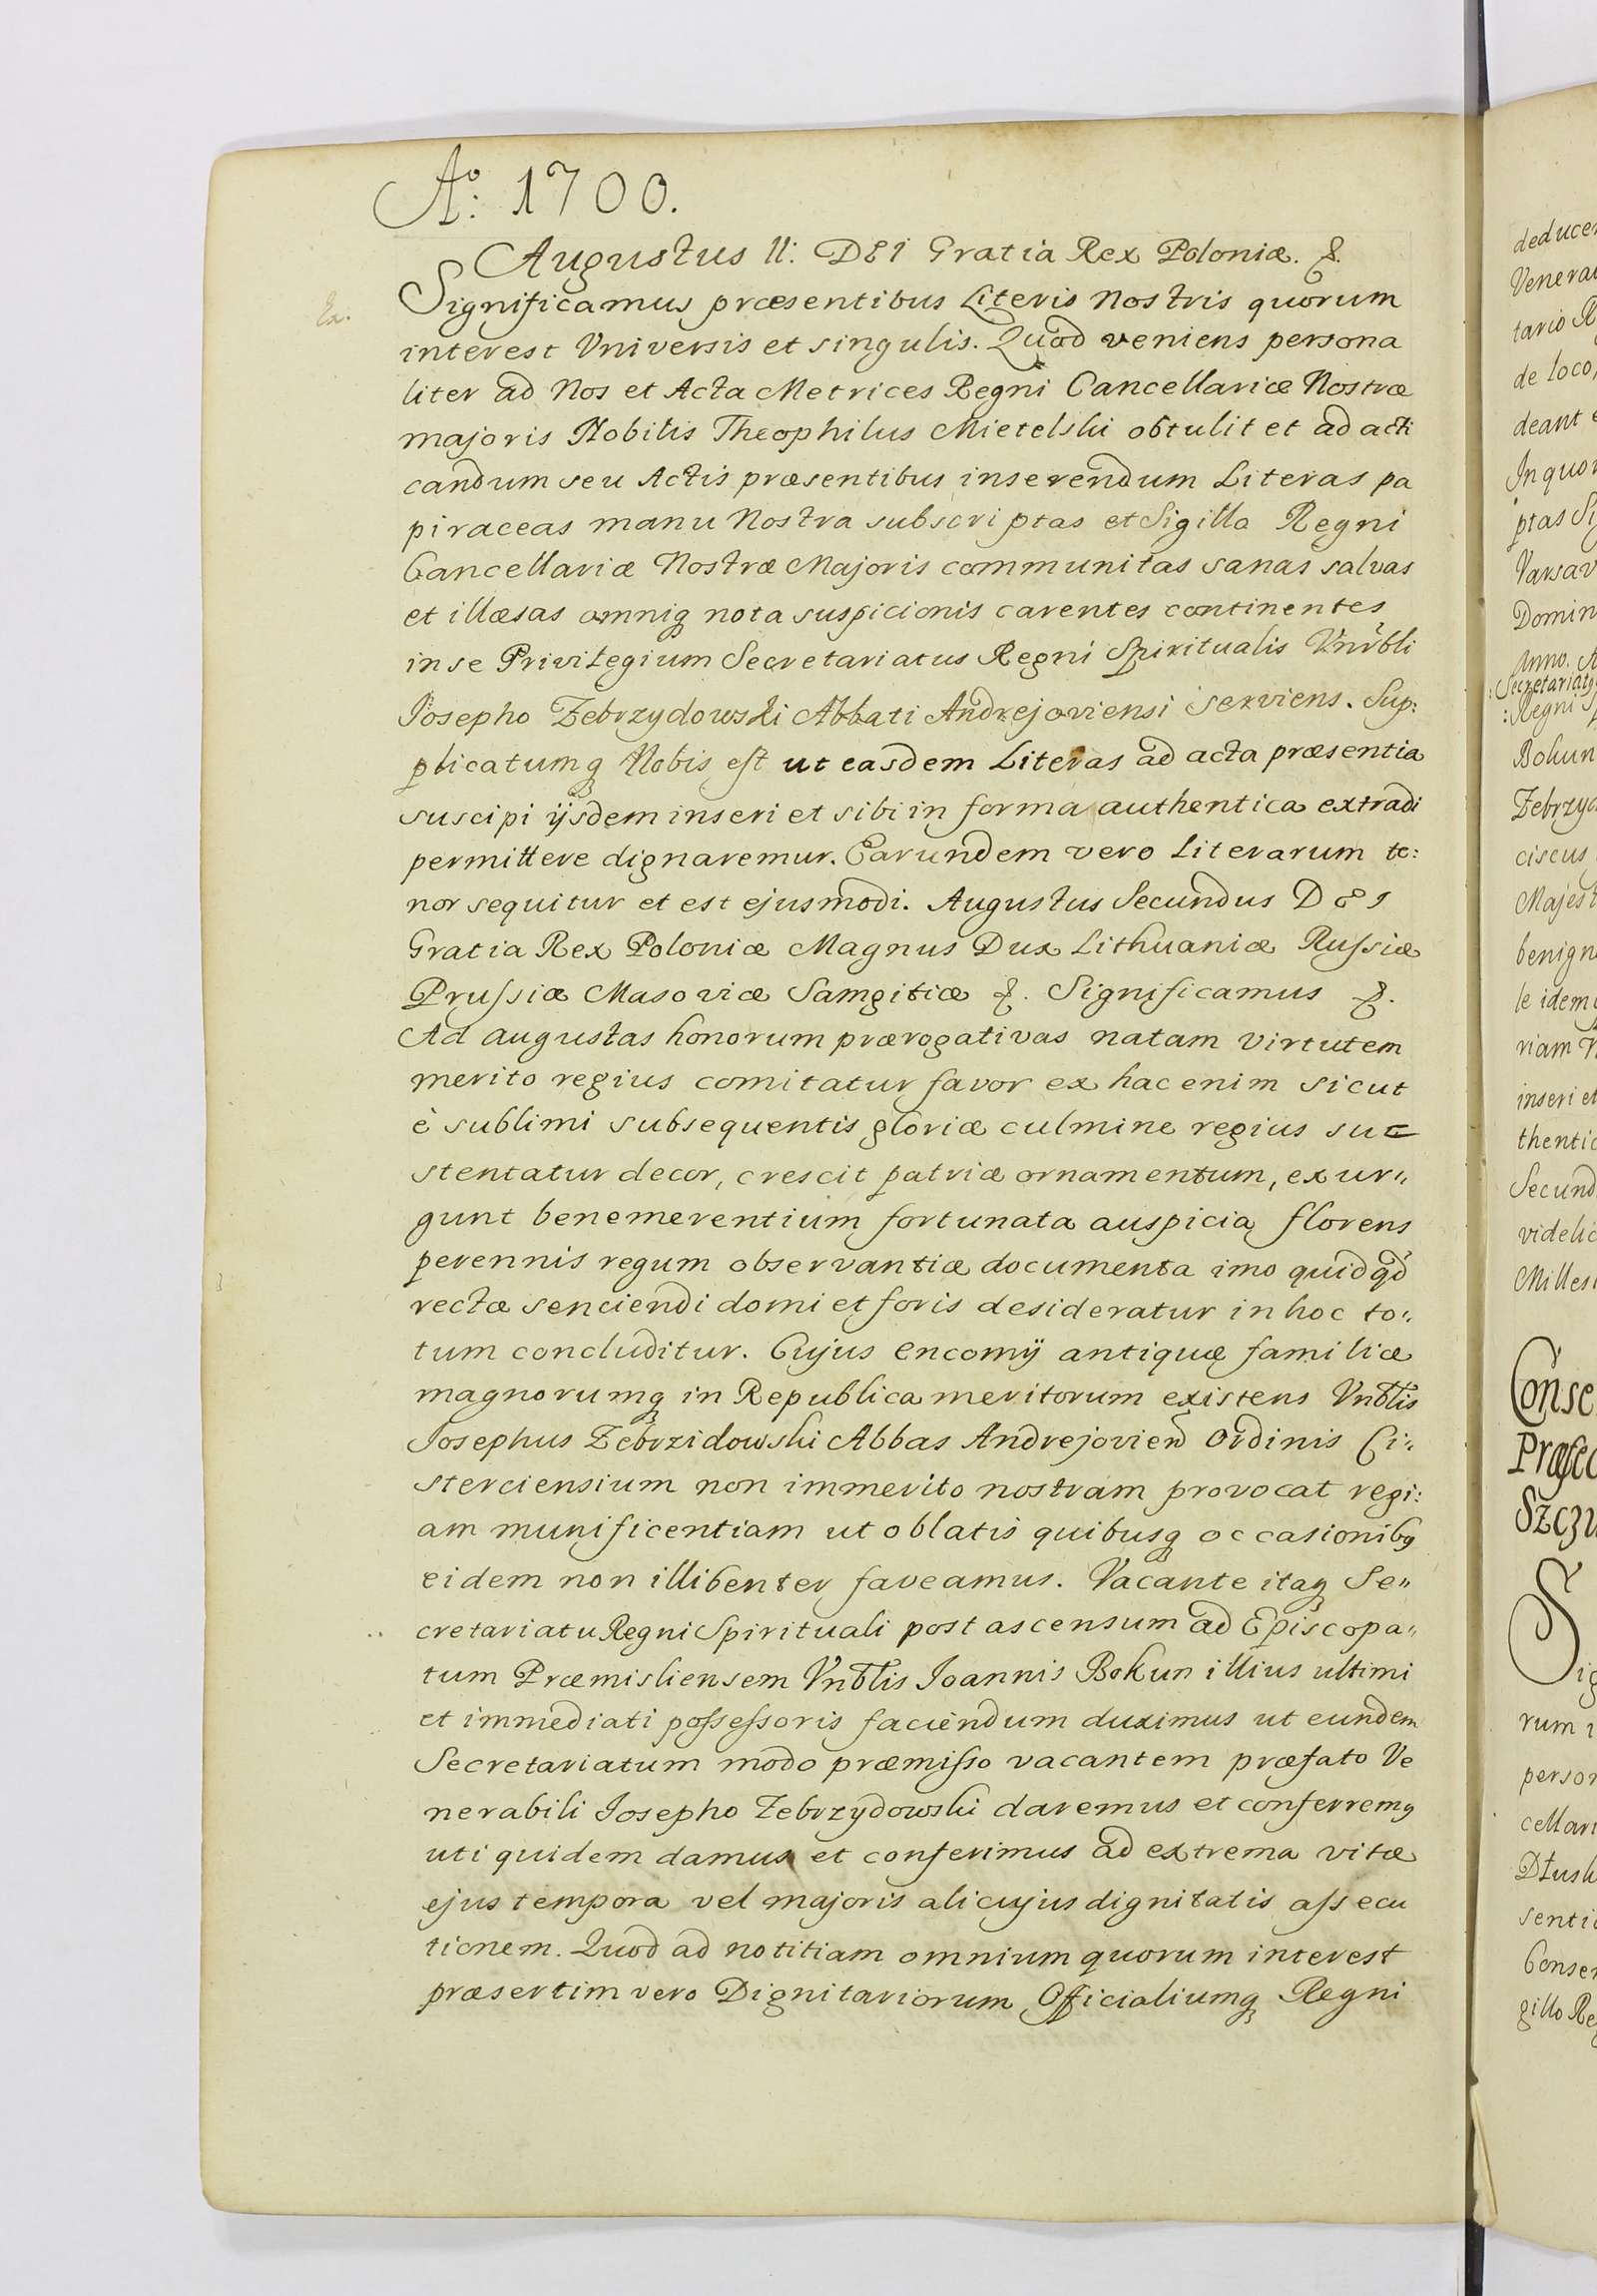 Aº: 1700.
Augustus II: DEI Gratia Rex Poloniæ. &.
Significamus præsentibus Literis Nostris quorum
interest Vniversis et singulis. Quod veniens persona
liter ad Nos et Acta Metrices Regni Cancellariæ Nostræ
majoris Nobilis Theophilus Mietelski obtulit et ad acti
candum seu Actis præsentibus inserendum Literas pa
piraceas manu Nostra subscriptas et Sigillo Regni
Cancellariæ Nostræ Majoris communitas sanas salvas
et illæsas omniq nota suspicionis carentes continentes
in se Privilegium Secretariatus Regni Spiritualis Vnrbli
Josepho Zebrzydowski Abbati Andrejoviensi serviens. Sup:
plicatumq Nobis est ut easdem Literas ad acta præsentia
suscipi ijsdem inseri et sibi in forma authentica extradi
permittere dignaremur. Earundem vero Literarum te:
nor sequitur et est ejusmodi. Augustus Secundus DEI
Gratia Rex Poloniæ Magnus Dux Lithuaniæ Russiæ
Prussiæ Masoviæ Samgitiæ &. Significamus &.
Ad augustas honorum prærogativas natam virtutem
merito regius comitatur favor ex hac enim sicut
è sublimi subsequentis gloriæ culmine regius su=
stentatur decor, crescit patriæ ornamentum, exur„
gunt benemerentium fortunata auspicia florens
perennis regum observantiæ documenta imo quidqd
rectæ senciendi domi et foris desideratur in hoc to„
tum concluditur. Cujus encomij antiquæ familiæ
magnorumq in Republica meritorum existens Vnblis
Josephus Zebrzidowski Abbas Andrejovien Ordinis Ci„
sterciensium non immerito nostram provocat regi:
am munificentiam ut oblatis quibusq occasionibq
eidem non illibenter faveamus. Vacante itaq Se„
cretariatu Regni Spirituali post ascensum ad Episcopa„
tum Præmisliensem Vnblis Joannis Bokun illius ultimi
et immediati possessoris faciendum duximus ut eundem
Secretariatum modo præmisso vacantem præfato Ve
nerabili Josepho Zebrzydowski daremus et conferremq
uti quidem damus et conferimus ad extrema vitæ
ejus tempora vel majoris alicujus dignitatis assecu
tionem. Quod ad notitiam omnium quorum interest
præsertim vero Dignitariorum Officialiumq Regni
deducen
Venerab
tario R
de loco,
deant e
In quor
ptas Si
Varsav
Domin
Anno.
:Secretariatq
:Regni S
Bokun
Zebrzyd
ciscus
Majest
benign
le idem
riam N
inseri et
thentic
Secund
videlic
Milles
Conse
Præfec
Szczu
Sig
rum i
person
cellari
senti
Consen
gillo Reg